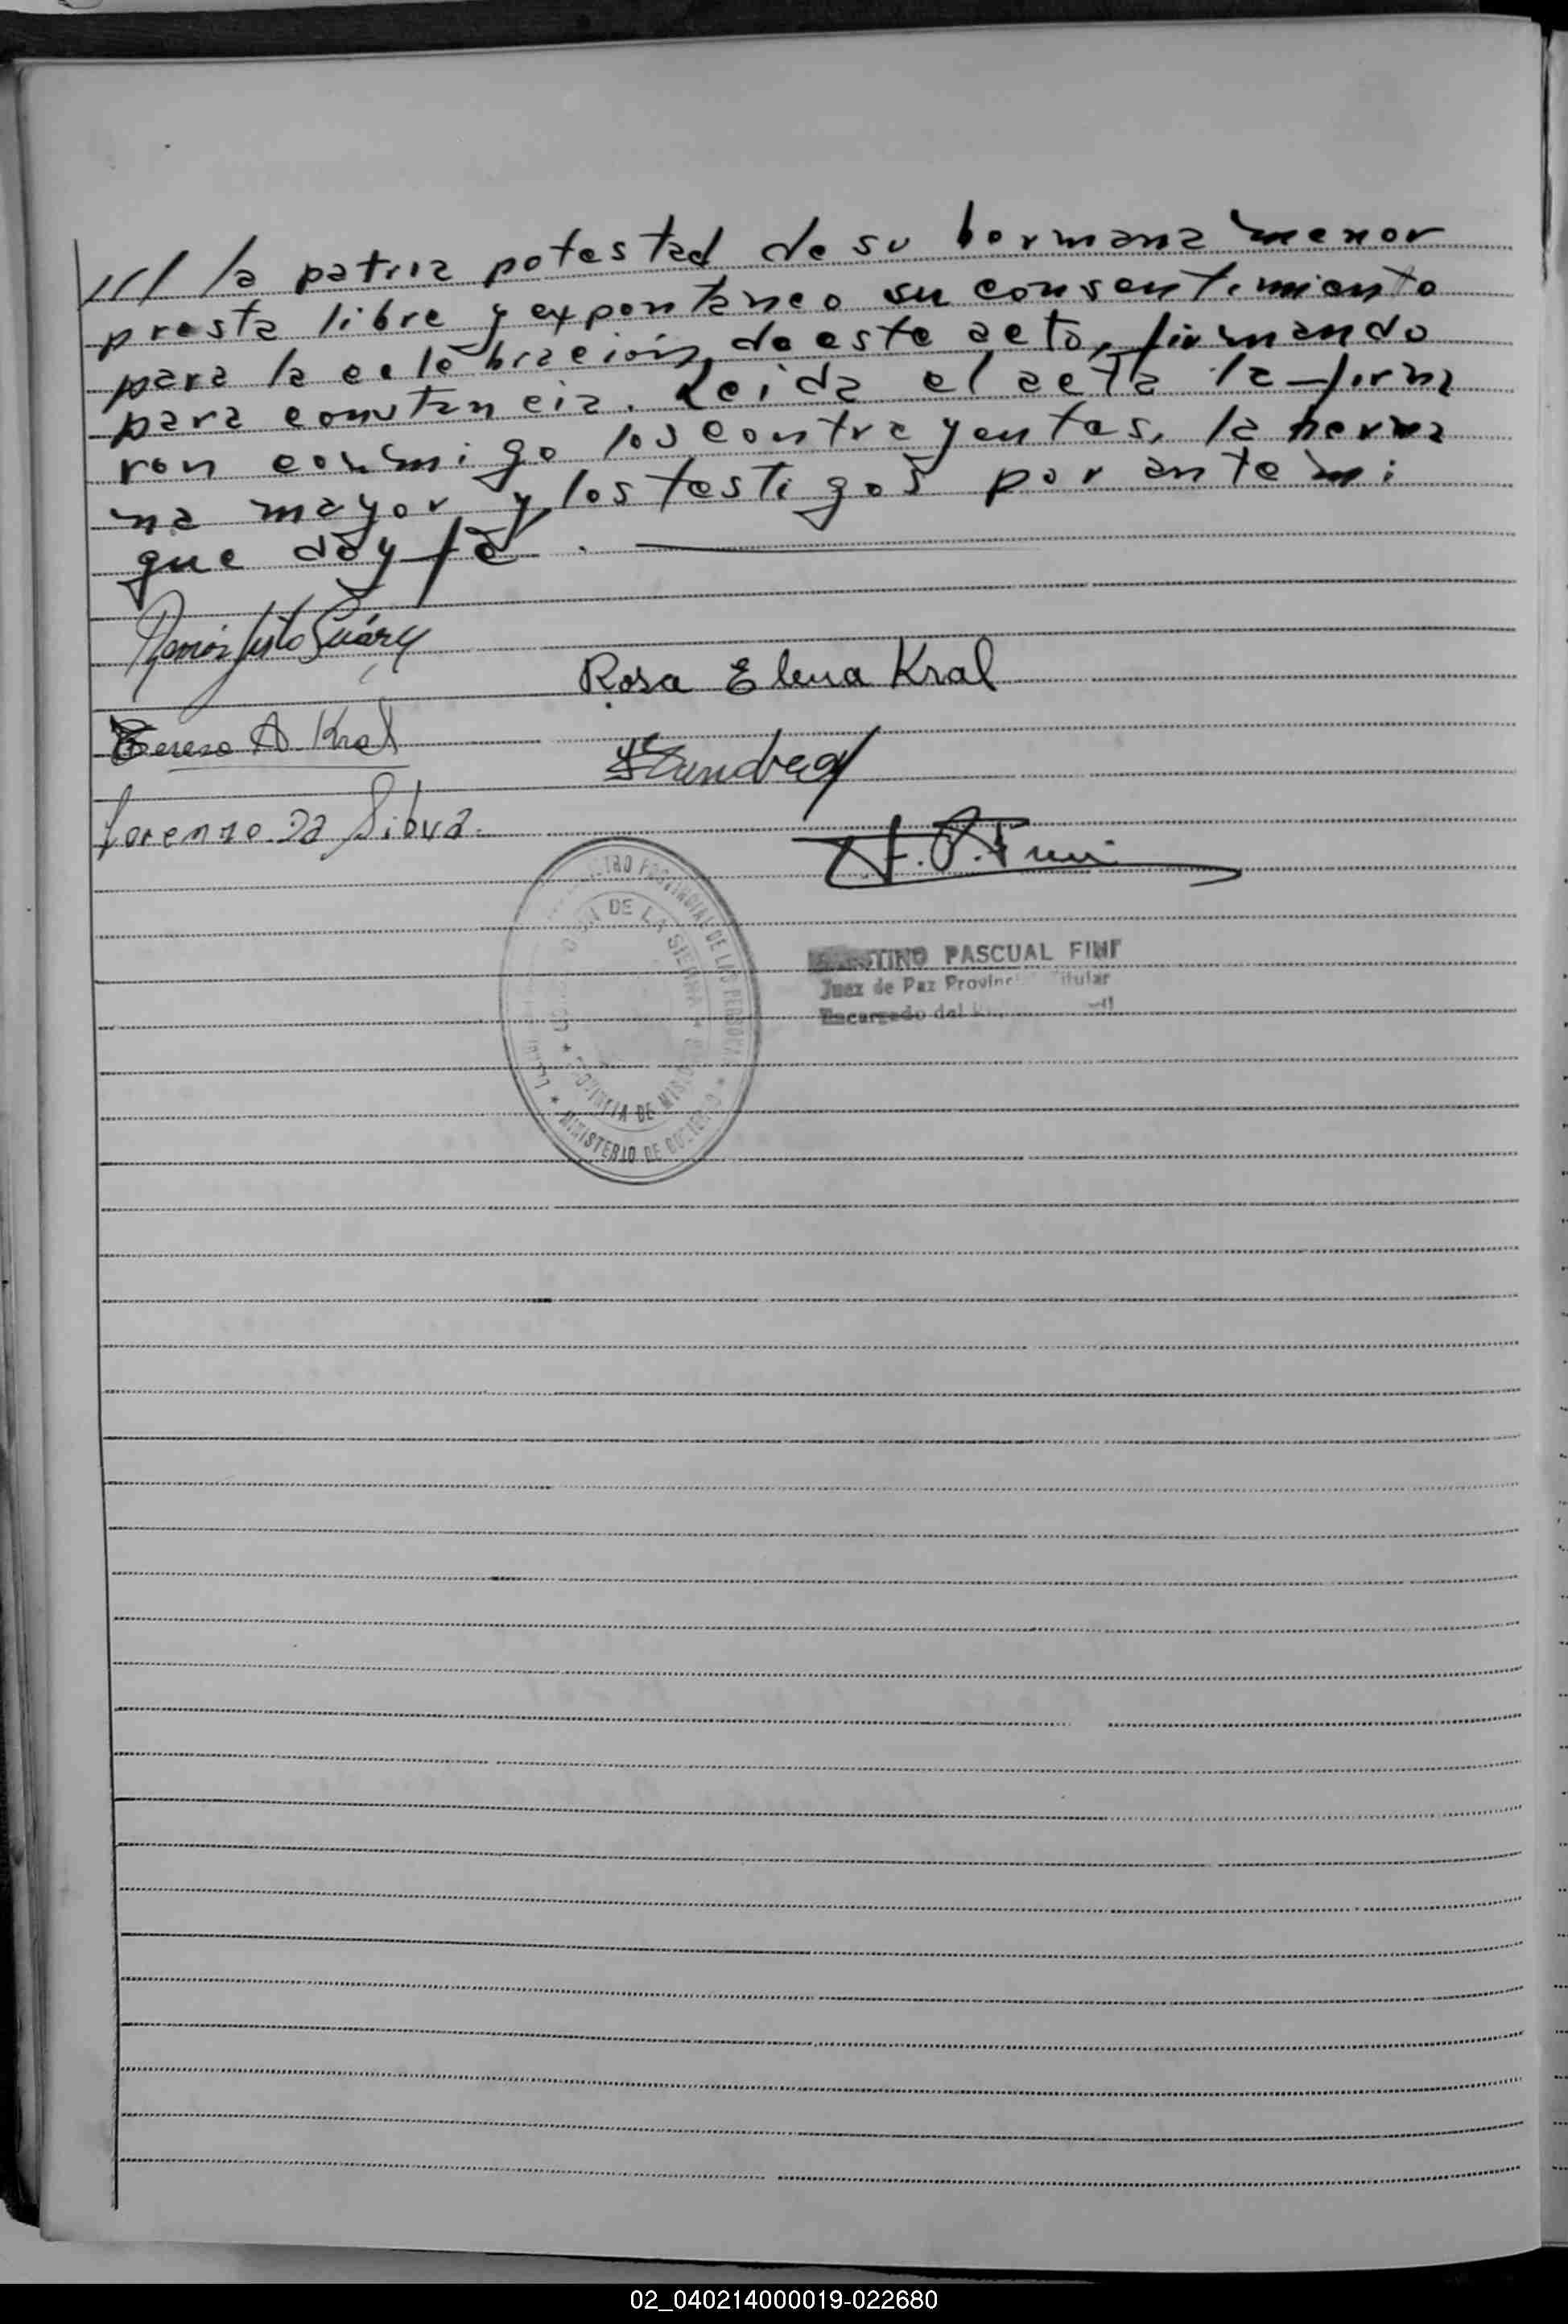 /// la patria potestad de su hermana menor
presta libre y expontáneo su consentimiento
para la celebración de este acto, firmando
para constancia. Leida el acta la firma
ron conmigo los contrayentes, la herma
na mayor y los testigos por ante mi
que doy fé.
Ramón Justo Suárez
Rosa Elena Kral
Teresa A. Kral
Lorenzo da Silva.
REGISTRO PROVINCIAL DE LAS PERSONAS
DE LA SIERRA
PROVINCIA DE MIS
MINISTERIO DE GOBIERNO
PASCUAL
Juez de Paz Provincial Titular
Encargado del
02_040214000019-022680